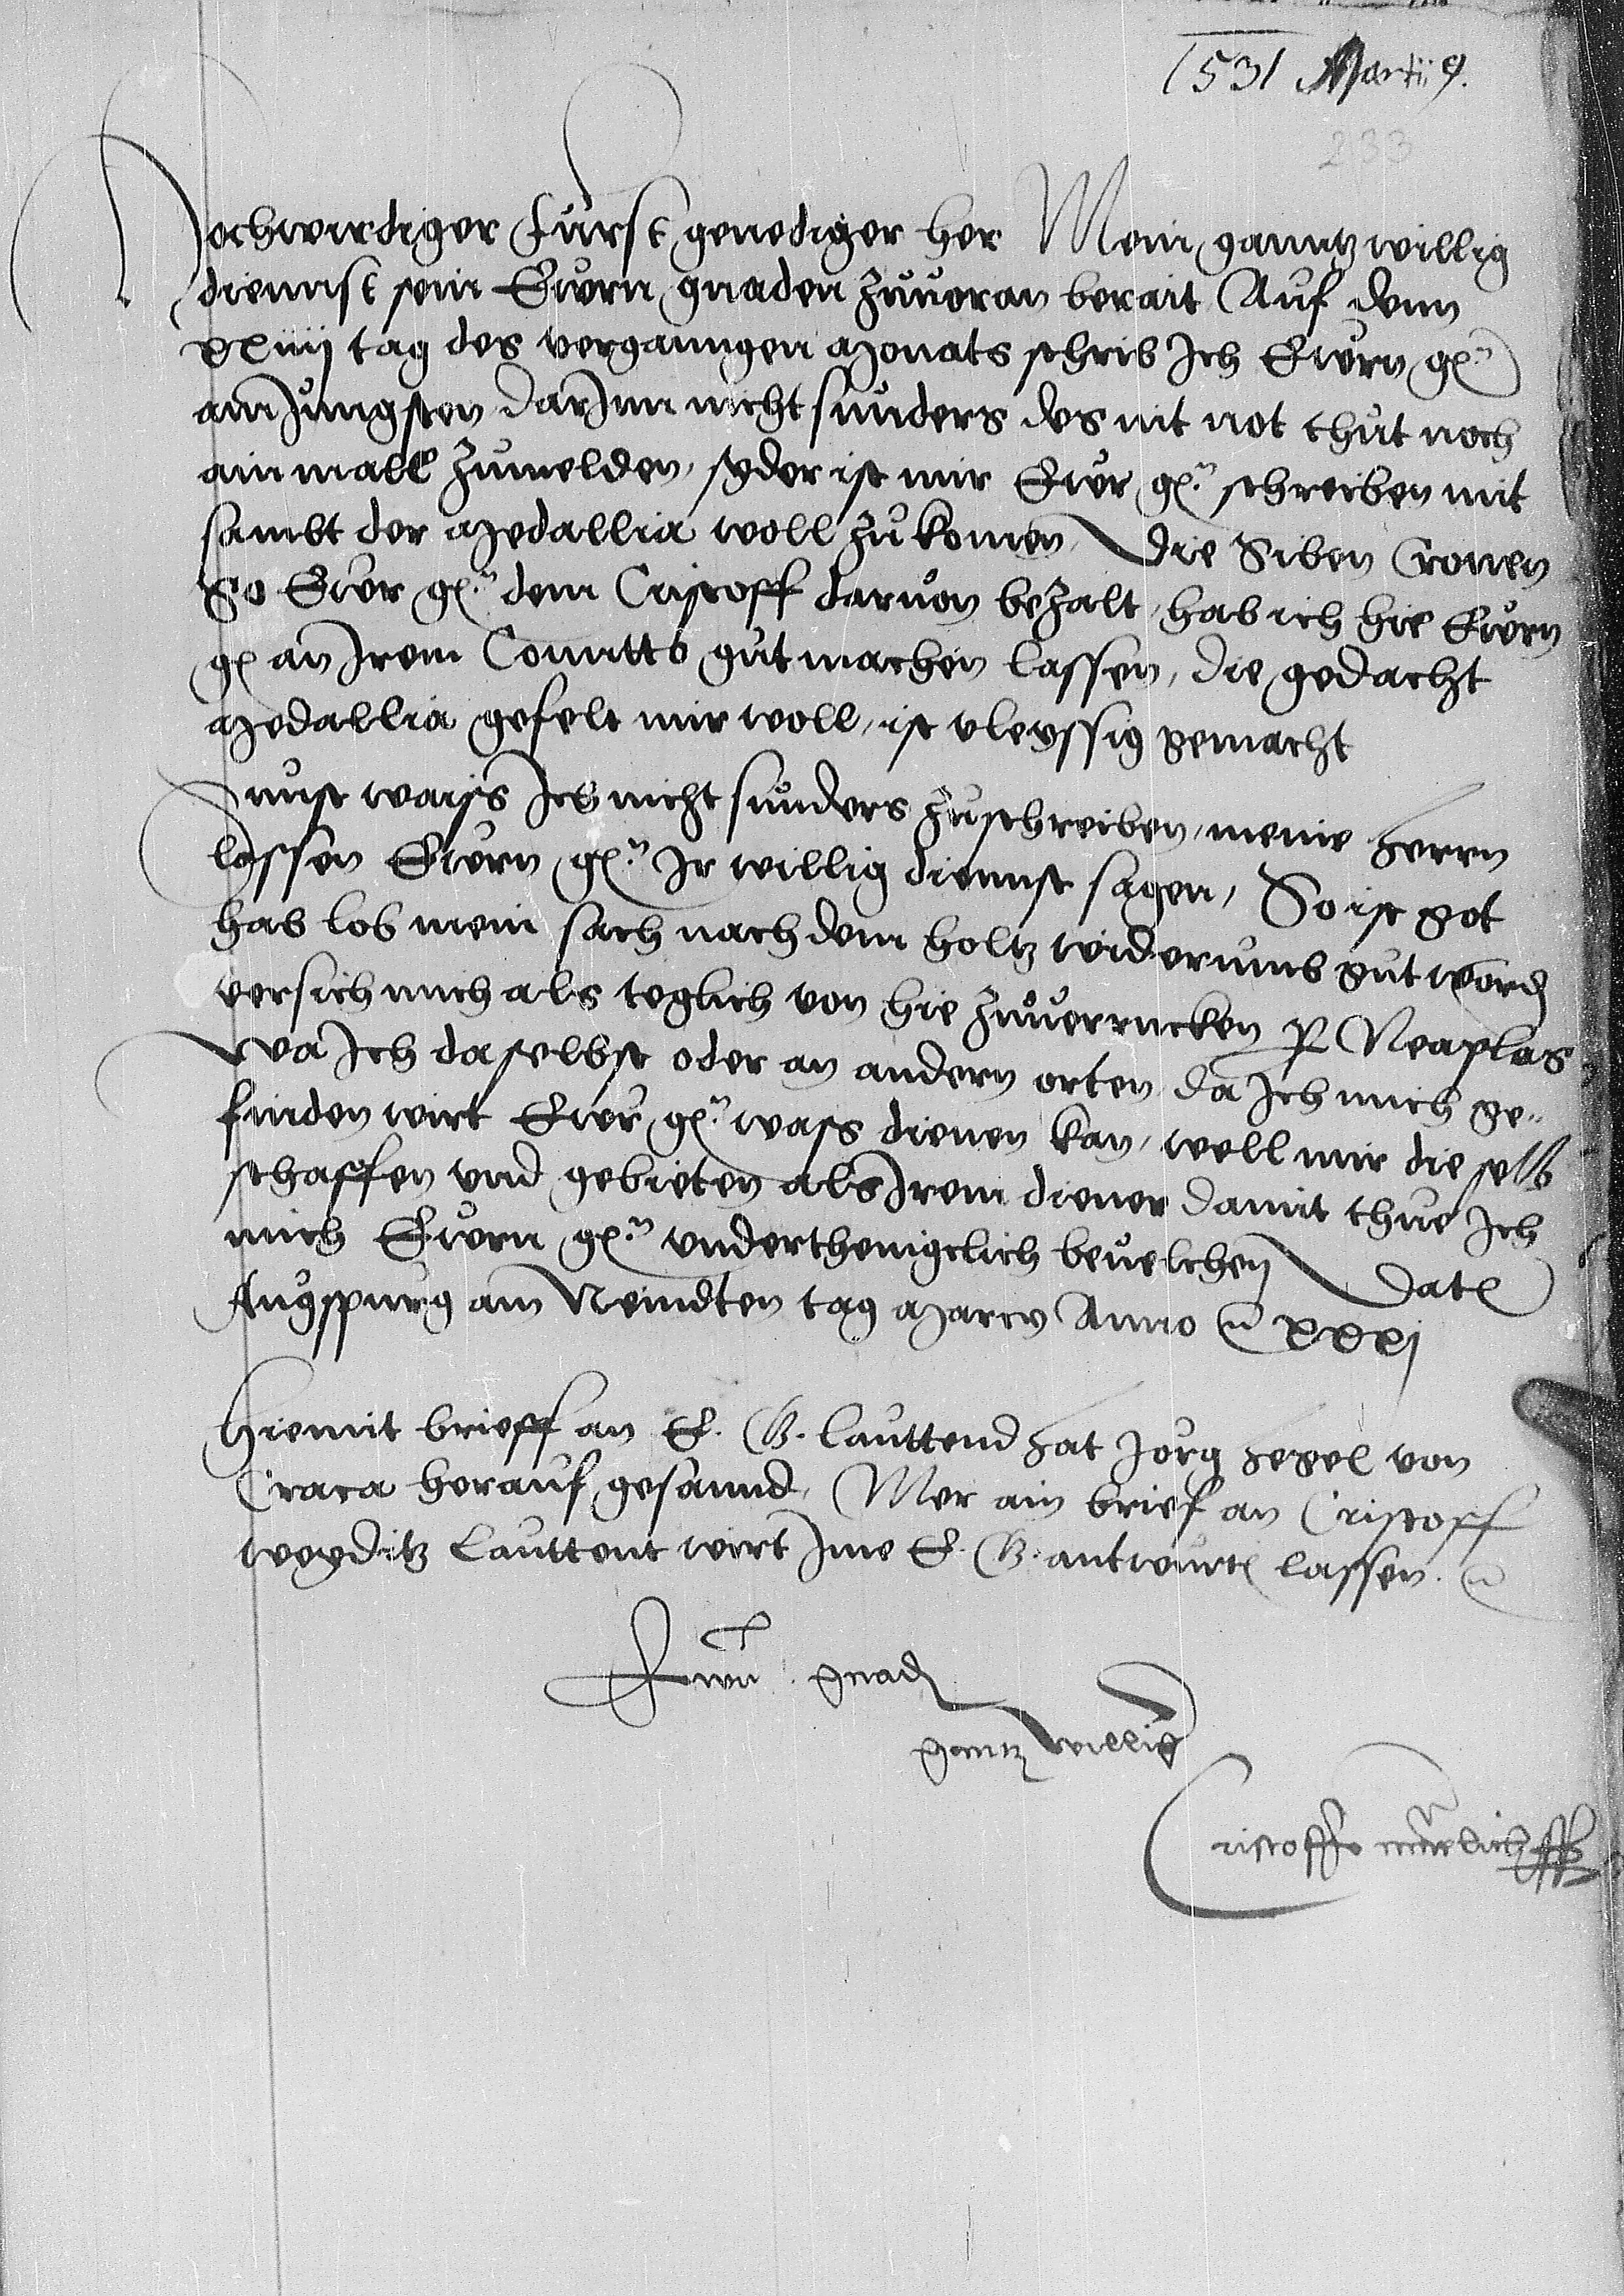 1531 Martii 9.
233
Hochwirdiger Furst genediger her Mein ganntz willig
diennst sein Eurn gnaden zuuoran berait Auf denn
xxiiij tag des vergangen Monats schrib Ich Eurn g.
am Jungsten darInn nicht sunders des nit not thut noch
ain mall zumelden, syder ist mir Eur g. schreiben mit
sambt der Medallia woll zu komen, die Siben Cronen
So Eur g. dem Cristoff daruon bezalt, hab ich hie Eurn
g. an Irem Conntto gut machen lassen, die gedacht
Medallia gefelt mir woll, ist vleyssig gemacht
Sunst waiss Ich nicht sunders zuschreiben, meine herrn
lassen Eurn g. Ir willig diennst sagen, So ist got
hab lob mein sach nach dem holtz widerumb gut word
versich mich als teglich von hie zuuerrucken p Neaplas
wa Ich daselbst oder an andern orten da Ich mich ge-
finden wirt Eur g. wass dienen kan, well mir die selb
schaffen vnd gebieten als Irem diener damit thue Ich
mich Eurn g. vnderthenigclich beuelchen Dat
Augspurg am Neindten tag Marcy Anno xxxj
Hiemit brieff an E. G. lauttend hat Jorg hegel von
Craca herauf gesannd, Mer ain brief an Cristoff
weyditz lauttent wirt Ime E. G. antwurt lassen.
Ewr gnad
gantz willig
Cristoff